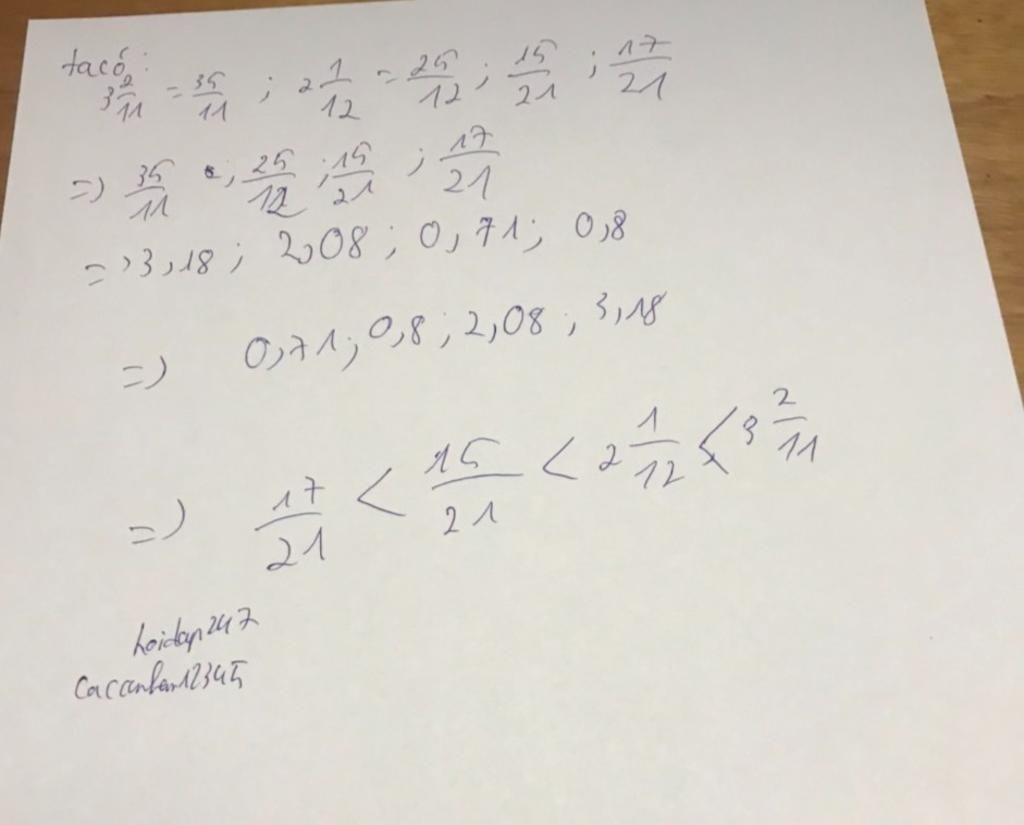 ta có:
3 2/11 = 35/11 ; 2 1/12 = 25/12 ; 15/21 ; 17/21
=> 35/11 ; 25/12 ; 15/21 ; 17/21
=> 3,18 ; 2,08 ; 0,71 ; 0,8
=> 0,71 ; 0,8 ; 2,08 ; 3,18
=> 17/21 < 15/21 < 2 1/12 < 3 2/11
hoidap247